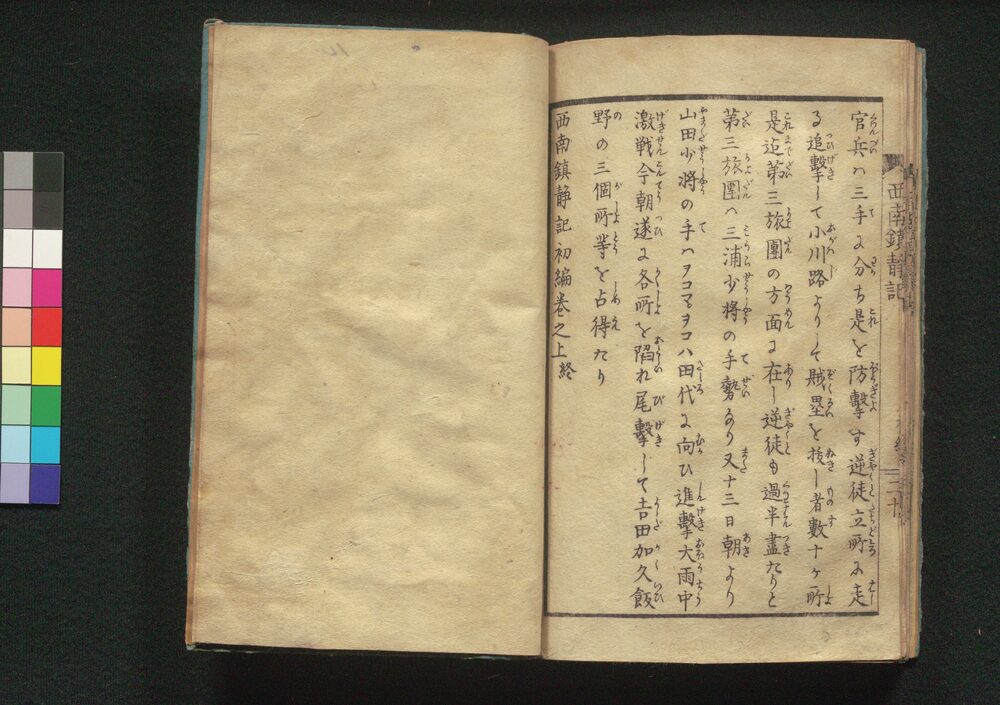 官兵ハ三手に分ち是を防撃す逆徒立所に走
る追撃して小川路よりして賊塁を抜し者數十ヶ所
是迄第三旅團の方面に在し逆徒も過半盡たりと
第三旅團ハ三浦少将の手勢なり又十三日朝より
山田少将の手ハヲコマヲコハ田代に向ひ進撃大雨中
激戦今朝遂に各所を陥れ尾撃して吉田加久飯
野の三個所等を占得たり
西南鎮静記初編巻之上終
西南鎮静記
二十